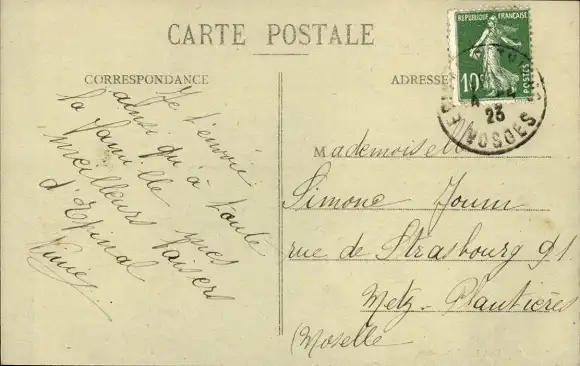 CARTE POSTALE
CORRESPONDANCE
ADRESSE
RÉPUBLIQUE FRANÇAISE
10c
POSTES
23
VOSGES
Je t'envoie
ainsi qu'à toute
la famille mes
meilleurs baisers
d'Epinal
Mademoiselle
Simone
rue de Strasbourg 91
Metz-Plantières
(Moselle)